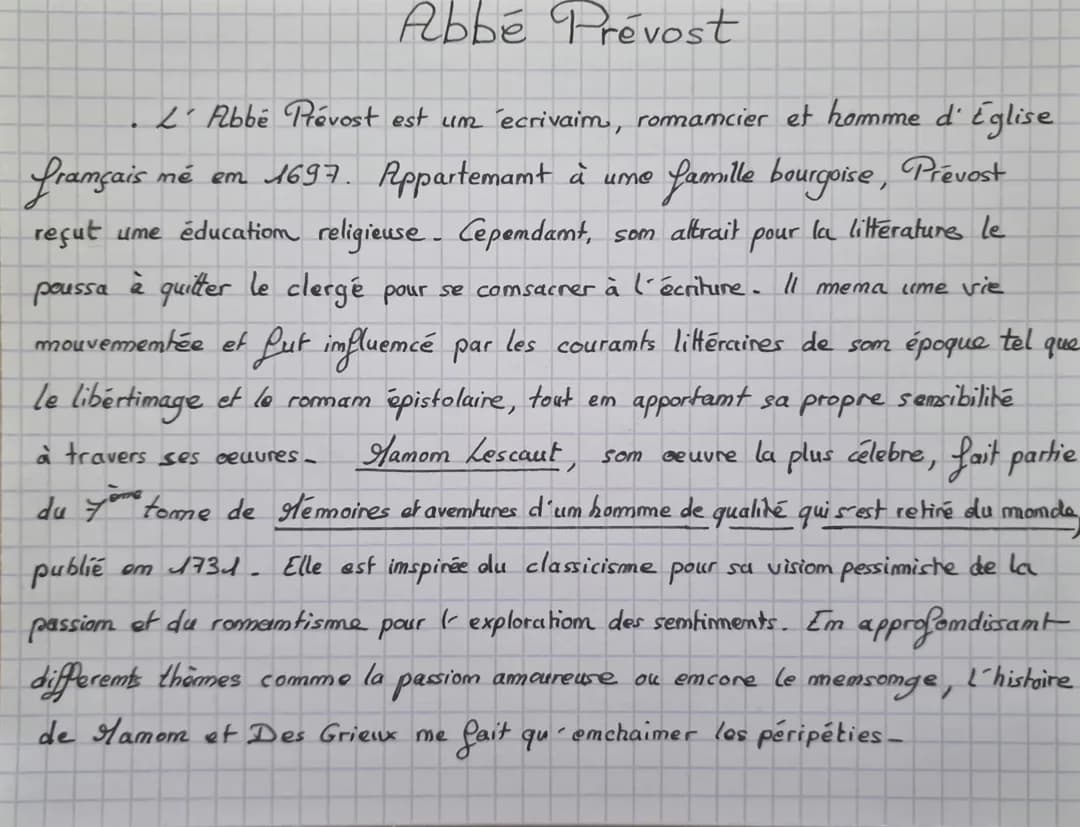 Abbé Prévost
. L'Abbé Prévost est un écrivain, romancier et homme d'Église
français né en 1697. Appartenant à une famille bourgoise, Prévost
reçut une éducation religieuse. Cependant, son attrait pour la littérature le
poussa à quitter le clergé pour se consacrer à l'écriture. Il mena une vie
mouvementée et fut influencé par les courants littéraires de son époque tel que
le libértinage et le roman épistolaire, tout en apportant sa propre sensibilité
à travers ses oeuvres. Manon Lescaut, son oeuvre la plus célèbre, fait partie
du 7ème tome de Mémoires et aventures d'un homme de qualité qui s'est retiré du monde,
publié en 1731. Elle est inspirée du classicisme pour sa vision pessimiste de la
passion et du romantisme pour l'exploration des sentiments. En approfondissant
differents thèmes comme la passion amoureuse ou encore le mensonge, l'histoire
de Manon et Des Grieux ne fait qu'enchainer les péripéties.